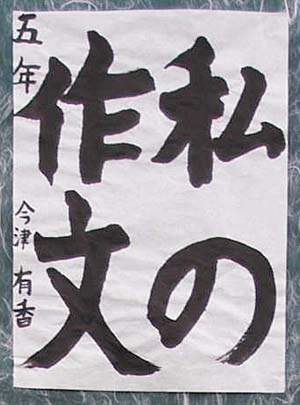 私の
作文
五年 今津有香